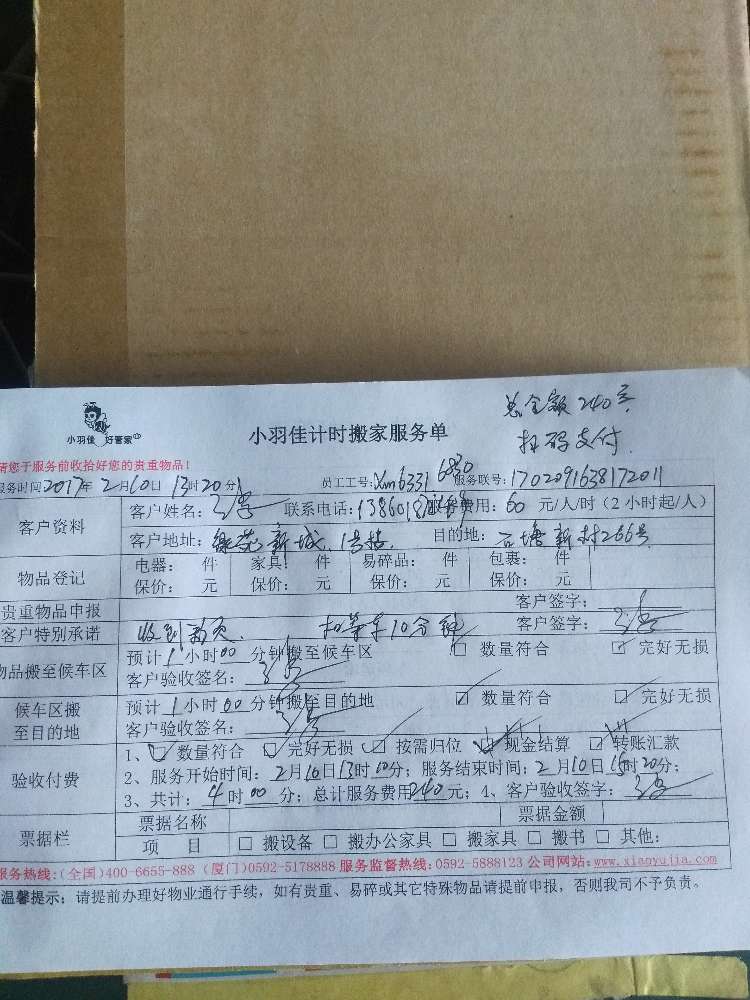 总金额240元
扫码支付
小羽佳 好管家
小羽佳计时搬家服务单
请您于服务前收拾好您的贵重物品!
服务时间2017年2月10日13时20分
员工工号:xm6331 6830 服务联号:1702091638172011
客户资料
客户姓名: 联系电话: 服务费用:60 元/人/时(2小时起/人)
客户地址: 新城 1号楼 目的地: 塘新村266号
物品登记
电器: 件 家具: 件 易碎品: 件 包裹: 件
保价: 元 保价: 元 保价: 元 保价: 元
贵重物品申报 客户签字:
客户特别承诺 收到 扣等车10分钟 客户签字:
物品搬至候车区
预计1小时00分钟搬至候车区 数量符合 完好无损
客户验收签名:
候车区搬至目的地
预计1小时00分钟搬至目的地 数量符合 完好无损
客户验收签名:
验收付费
1、数量符合 完好无损 按需归位 现金结算 转账汇款
2、服务开始时间:2月10日13时10分;服务结束时间:2月10日15时20分;
3、共计:4时00分;总计服务费用240元;4、客户验收签字:
票据栏
票据名称 票据金额
项 目 □ 搬设备 □ 搬办公家具 □ 搬家具 □ 搬书 □ 其他:
服务热线:(全国)400-6655-888 (厦门)0592-5178888 服务监督热线:0592-5888123 公司网站:www.xiaoyujia.com
温馨提示:请提前办理好物业通行手续,如有贵重、易碎或其它特殊物品请提前申报,否则我司不予负责。